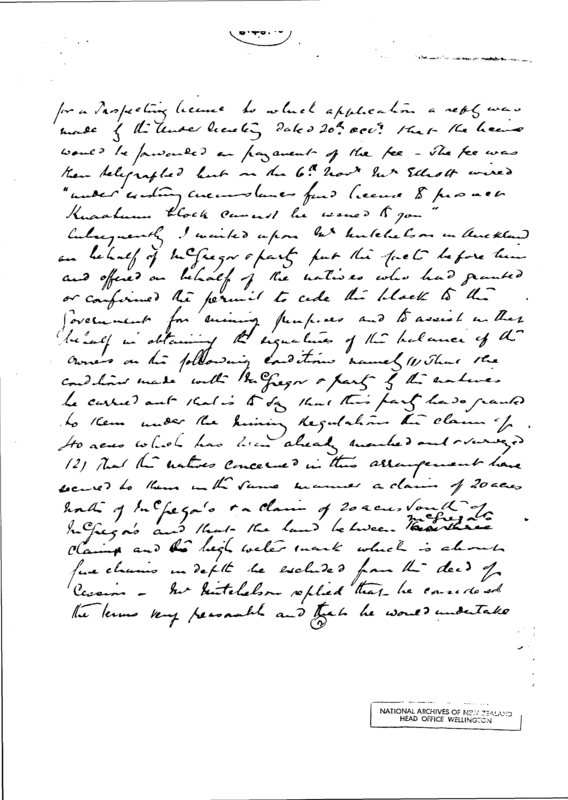 for a Prospecting license to which application a reply was
made by the Under Secretary dated 20th that the license
would be forwarded on payment of the fee – The fee was
then telegraphed but on the 6th Novr Mr Elliott wired
"under existing circumstances fund license & prospect
block cannot be issued to you"
Subsequently I waited upon Mr Mitchelson in Auckland
on behalf of McGregor & party put the facts before him
and offered on behalf of the natives who had granted
or confirmed the permit to cede this block to the
Government for mining purposes and to assist in their
behalf in obtaining the signatures of the balance of the
owners on the following conditions namely (1) That the
conditions made with McGregor & party by the natives
be carried out that is to say that this party have granted
to them under the Mining Regulations the claim of
40 acres which has been already marked out & surveyed
(2) That the natives concerned in this arrangement have
secured to them in the same manner a claim of 20 acres
North of McGregor's & a claim of 20 acres South of
McGregor's and that the land between McGregor's
claim and high water mark which is about
five chains in depth be excluded from the deed of
Cession – Mr Mitchelson replied that he considered
the terms very reasonable and that he would undertake
2
NATIONAL ARCHIVES OF NEW ZEALAND
HEAD OFFICE WELLINGTON